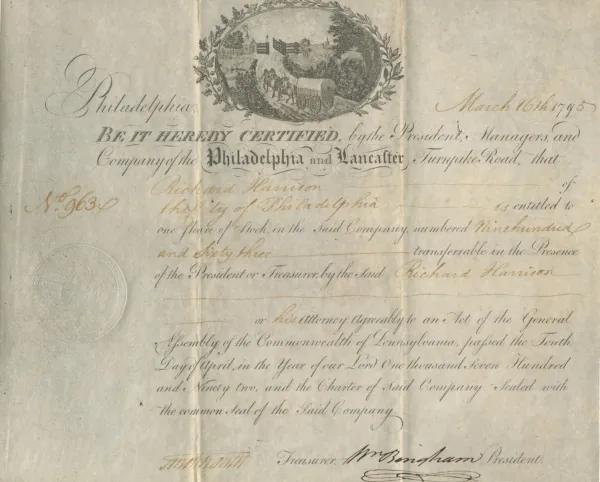 Philadelphia March 16th 1795
BE IT HEREBY CERTIFIED, by the President, Managers, and
Company of the Philadelphia and Lancaster Turnpike Road, that
Richard Harrison of
No. 963 the City of Philadelphia is entitled to
one Share of Stock, in the Said Company, numbered Nine hundred
and Sixty three transferrable in the Presence
of the President or Treasurer, by the Said Richard Harrison
or his Attorney. Agreeably to an Act of the General
Assembly of the Commonwealth of Pennsylvania, passed the Tenth
Day of April, in the Year of our Lord One thousand Seven Hundred
and Ninety two, and the Charter of Said Company Sealed with
the common Seal of the Said Company
Treasurer. Wm Bingham President.